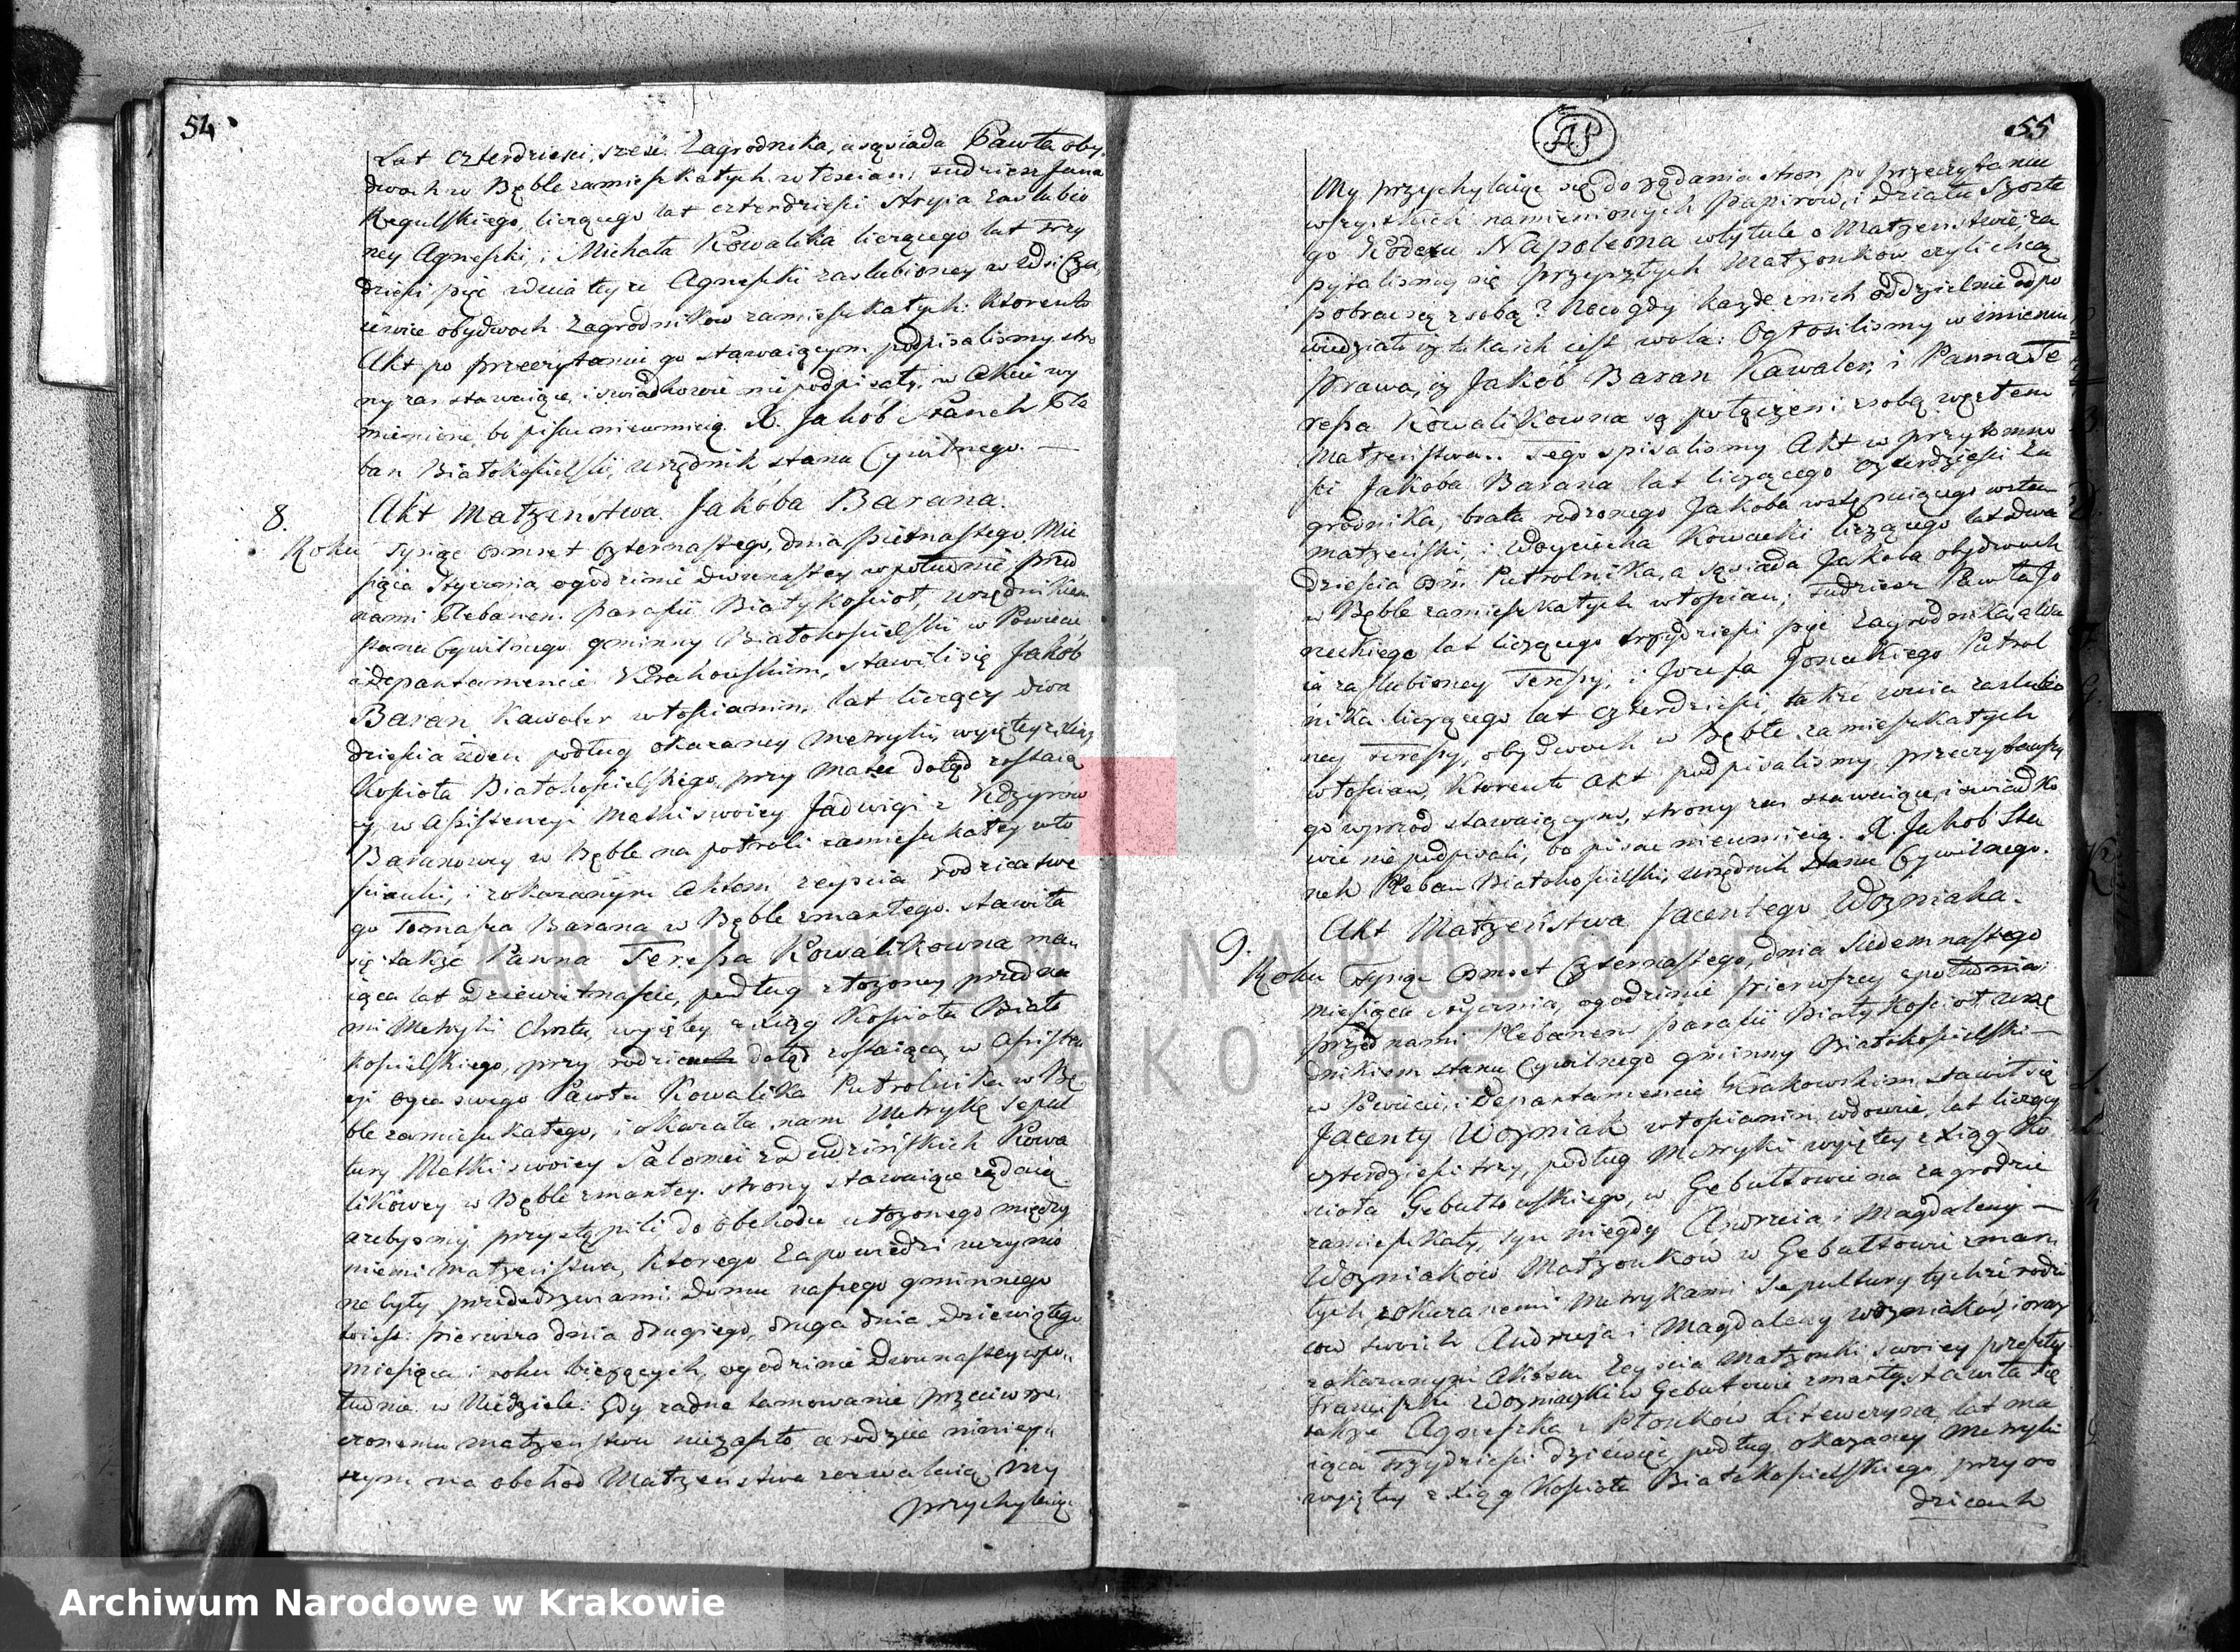 54
Lat czterdzieści sześć Zagrodnika, a sąsiada Pawła oby
dwoch w Bęble zamieszkałych włościan; tudziesz Jana
Regulskiego, liczącego lat czterdzieści Stryia zaślubio
ney Agneszki, i Michała Kowalika liczącego lat trzy
dzieści pięć wuia teyże Agneszki zaslubioney w Wsi
obydwoch Zagrodnikow zamieszkałych: Ktorento
Akt po przeczytaniu go stawaiącym podpisalismy stro
ny zas stawaiące, i swiadkowie niepodpisały, w Akcie wy
mienione, bo pisać nieumieią. X. Jakób Stanek Ple
ban Białokoscielski, urzędnik stanu Cywilnego. —
Akt Małzenstwa Jakóba Barana.
8.
Roku Tysiąc osmset czternastego, dnia piętnastego, Mie
siąca Stycznia, ogodzinie dwunastey w południe, przed
nami Plebanem parafii Białykościoł, urzędnikiem
stanu Cywilnego gminny Białokoscielski w Powiecie
i departamencie Krakowskim, stawili się Jakób
Baran Kawaler włościanin, lat liczący dwa
dzieścia ieden podług okazaney Metryki, wyiętey z xiąg
Kościoła Białokoscielskiego, przy matce dotąd zostaią
cy, w Assistencyi Matki swoiey Jadwigi z
Baranowey w Bęble na połroli zamieszkałey wło
scianki, i z okazanym Aktem zeyscia rodzica swe
go Tomasza Barana w Bęble zmarłego. stawiła
się także Panna Teressa Kowalikowna ma
iąca lat Dziewiętnascie, podług złozoney przed na
mi Metryki Chrztu, wyiętey z xiąg Kościoła Biało
koscielskiego, przy dotąd zostaiąca, w Assisten
cyi oyca swego Pawła Kowalika Pułrolnika w Bę
ble zamieszkałego, i okazała nam Metrykę Sepul
tury Matki swoiey Salomei z Kowa
likowey w Bęble zmarłey. Strony stawaiące ządaią
azebysmy przystąpili do obchodu ułozonego między
niemi małżeństwa, ktorego Zapowiedzi uczynio
ne były przededrzwiami Domu naszego gminnego
to iest: pierwsza dnia drugiego, druga dnia dziewiątego
miesiąca i roku bieżących, ogodzinie Dwunastey w po
łudnie w Niedziele: Gdy zadne tamowanie przeciw rze
czonemu małzenstwu niezaszło a rodzice niniey
szym na obchod Małzeństwa zezwalaią, My
przychylaiąc
55
My przychylaiąc się do ządania stron po przeczytaniu
wszystkich namienionych papirow, i działu Szoste
go Kodexu Napoleona w tytule o Małzenstwie za
pytalismy się przyszłych Małzonkow czyli chcą
pobrać się z sobą? Naco gdy kazde z nich oddzielnie odpo
wiedziało iz takaich iest wola: Ogłosilismy w imieniu
Prawa, iz Jakób Baran Kawaler, i Panna Te
ressa Kowalikowna są połączeni z sobą węzłem
Małzeństwa. Tego spisalismy Akt w przytomno
ści Jakóba Barana lat liczącego czterdzieści Za
grodnika, brata rodzonego Jakoba wstępuiącego w stan
małzeński, i Woyciecha Kowacki liczącego lat dwa
dzieścia osm Pułrolnika, a sąsiada Jakoba obydwoch
w Bęble zamieszkałych włoscian; tudziesz Pawła Jo
neckiego lat liczącego trzydzieści pięć Zagrodnika, a Wu
ia zaslubioney Teressy, i Jozefa Joneckiego Pułrol
nika liczącego lat czterdzieści, takze wuia zaslubio
ney Teressy, obydwoch w Bęble zamieszkałych
włoscian, Ktorento akt podpisalismy przeczytawszy
go wprzod stawaiącym, strony zas stawaiące, i swiadko
wie nie podpisali, bo pisać nieumieią. X. Jakob Sta
nek Pleban Białokoscielski, urzędnik stanu Cywilnego.
Akt Małzeństwa Jacentego Wozniaka.
9.
Roku Tysiąc Osmset Czternastego, dnia Siedemnastego
miesiąca stycznia, ogodzinie pierwszey z południa
przed nami Plebanem parafii Białykoscioł urzę
dnikiem stanu Cywilnego gminny Białokoscielski —
w Powiecie, i Departamencie Krakowskim, stawił się
Jacenty Wozniak włoscianin wdowiec, lat liczący
czterdzieści trzy, podług Metryki wyiętey z xiąg Ko
scioła Gebułtowskiego, w Gebułtowie na zagrodzie
zamieszkały, syn niegdy Andrzeia, i Magdaleny —
Wozniaków Małzonków w Gebułtowie zmar
łych z okazanemi Metrykami Sepultury tychze rodzi
cow swoich Andrzeja i Magdaleny Wozniaków, i oraz
z okazanym Aktem zeyscia Małzonki swoiey przeszłey
Franciszki Wozniaczki w Gebułtowie zmarłey. stawiła się
także Agneszka z Płonków Litewczyna, lat ma
iąca trzydzieści dziewięć, podług okazaney Metryki
wyiętey z xiąg Kościoła Białokoscielskiego przy ro
dzicach
ARCHIWUM NARODOWE
W KRAKOWIE
Archiwum Narodowe w Krakowie